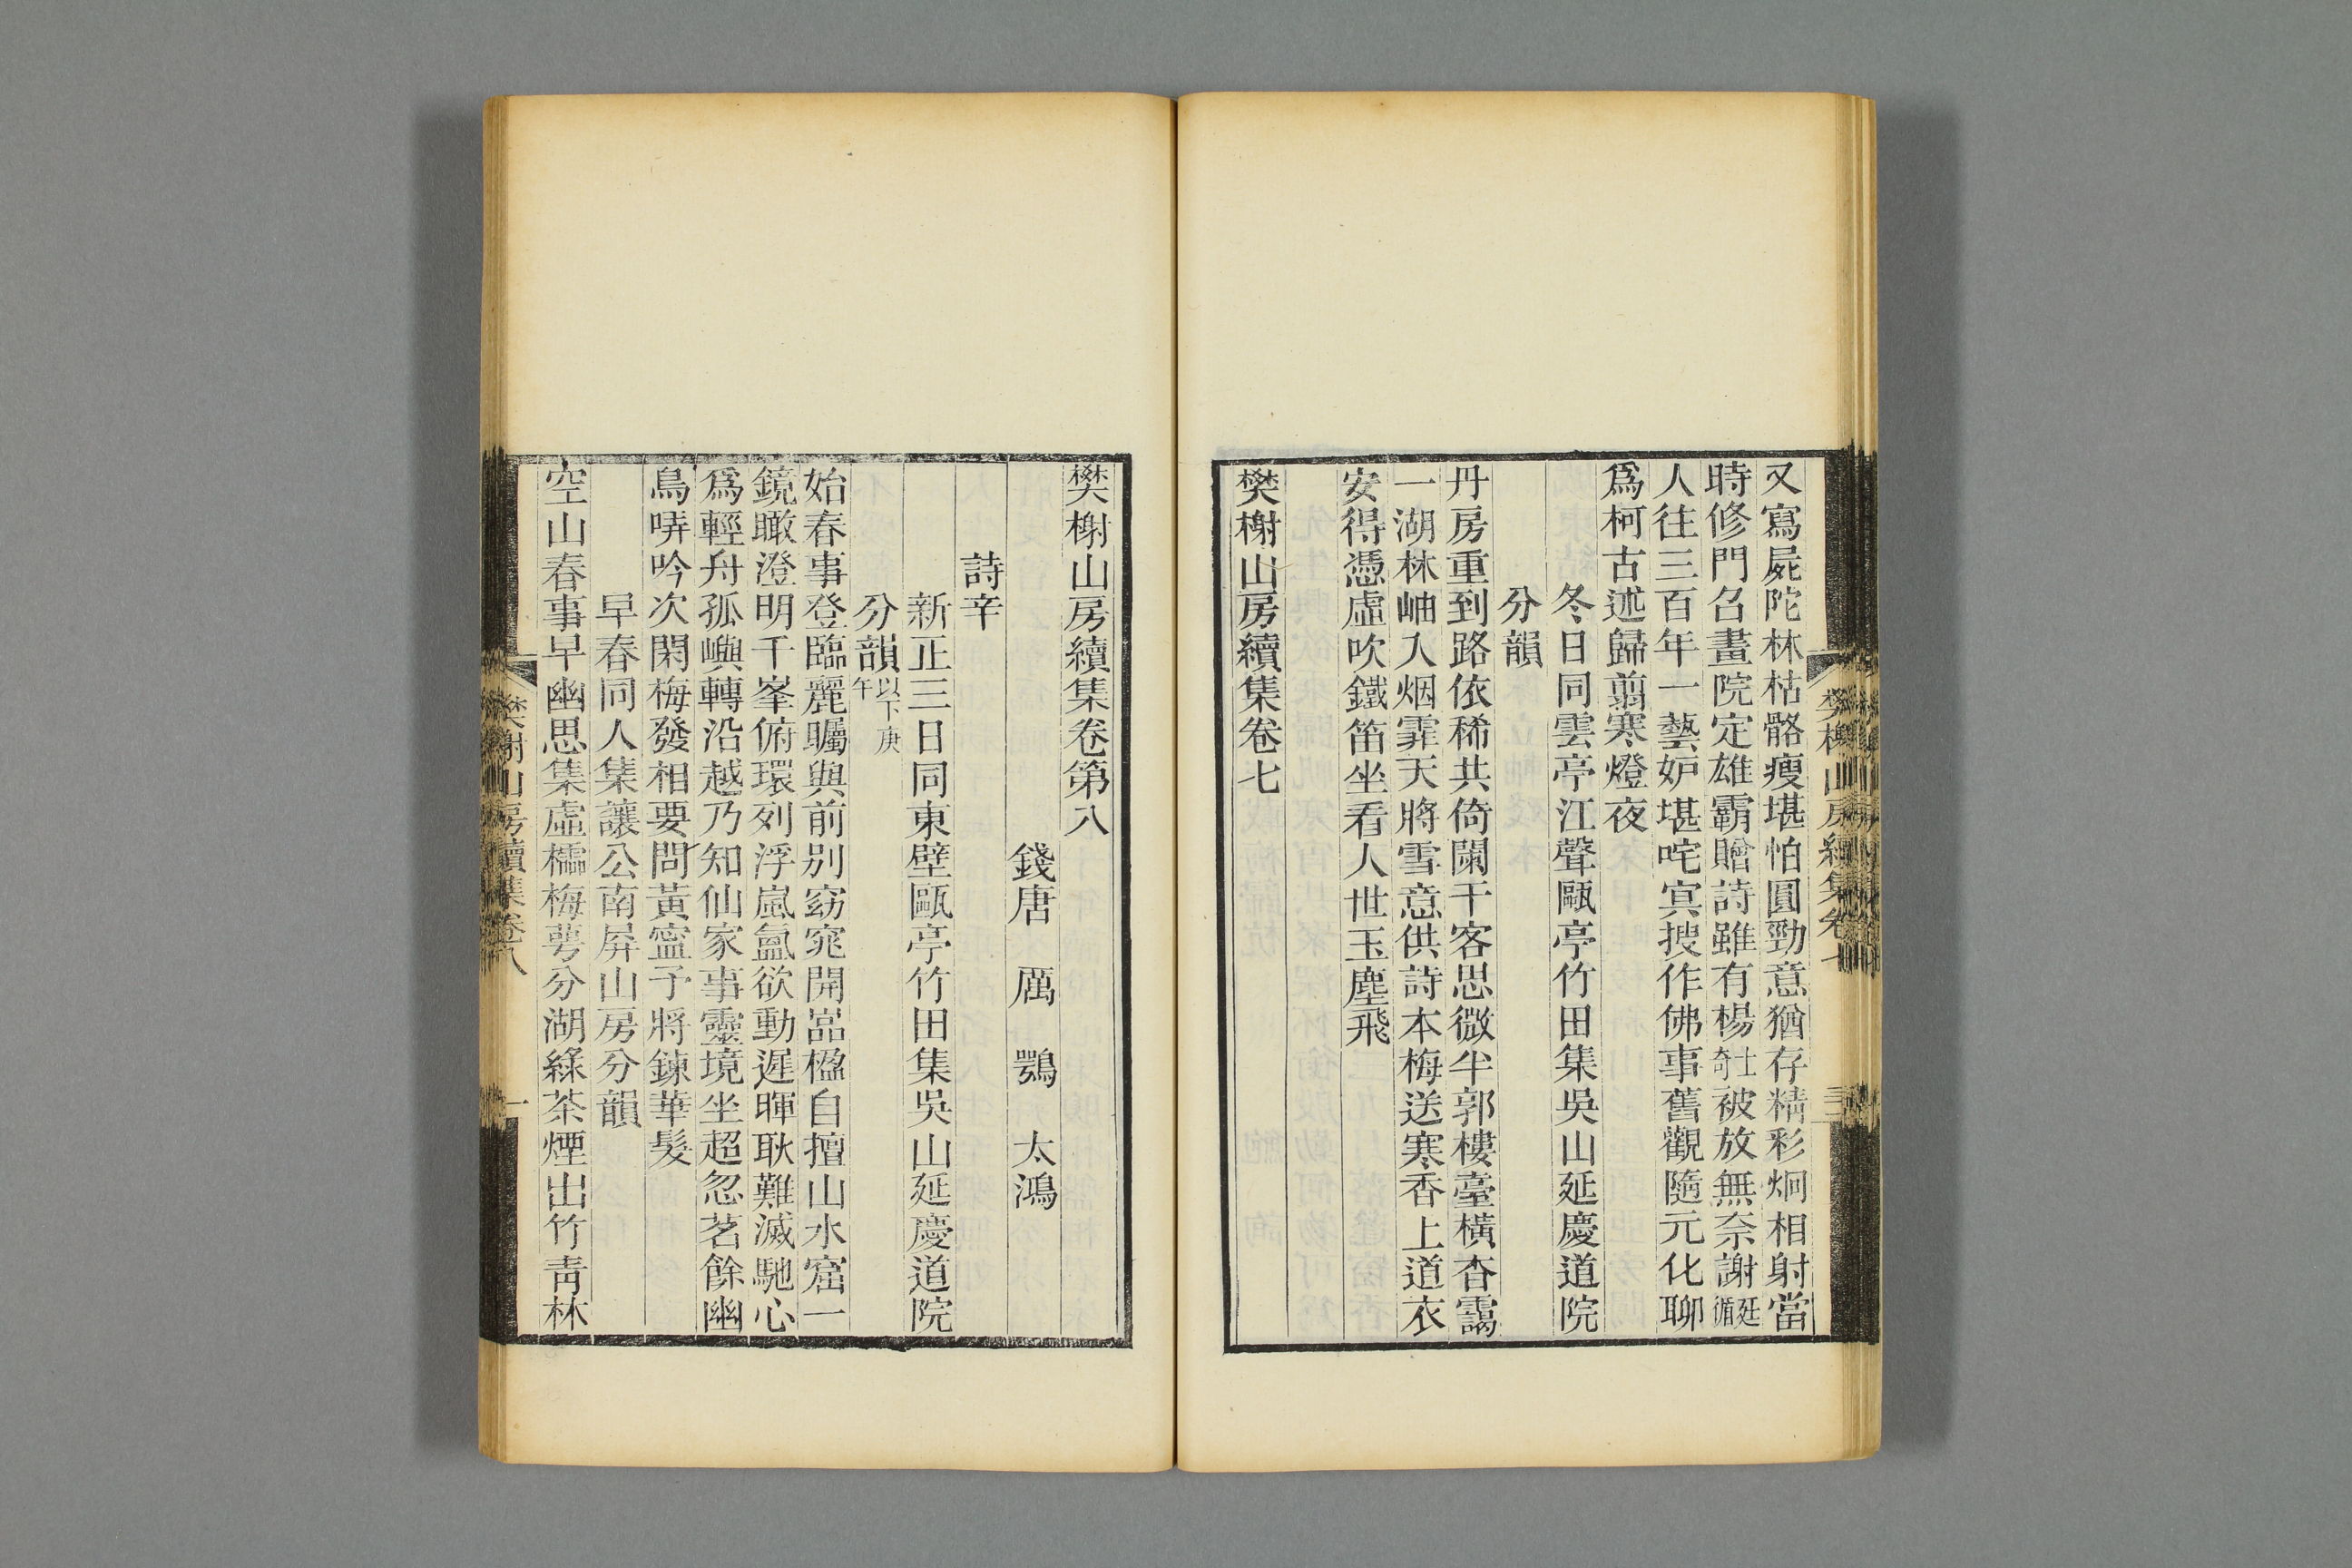 又寫屍陀林枯骼瘦堪怕圓勁意猶存精彩炯相射當
時修門召畫院定雄霸贈詩雖有楊士奇被放無奈謝廷循
人往三百年一藝妒堪咤冥搜作佛事舊觀隨元化聊
爲柯古述歸翦寒燈夜
冬日同雲亭江聲甌亭竹田集吳山延慶道院
分韻
丹房重到路依稀共倚闌干客思微半郭樓臺橫杳靄
一湖林岫入烟霏天將雪意供詩本梅送寒香上道衣
安得憑虛吹鐵笛坐看人世玉塵飛
樊榭山房續集卷七
樊榭山房續集卷第八
錢唐 厲鶚 太鴻
詩辛
新正三日同東壁甌亭竹田集吳山延慶道院
分韻以下庚午
始春事登臨麗矚與前別窈窕開嵓楹自擅山水窟一
鏡瞰澄明千峯俯環列浮嵐氳欲動遲暉耿難滅馳心
爲輕舟孤嶼轉沿越乃知仙家事靈境坐超忽茗餘幽
鳥哢吟次閑梅發相要問黃寍子將鍊華髮
早春同人集讓公南屏山房分韻
空山春事早幽思集虛櫺梅萼分湖綠茶煙出竹靑林
樊榭山房續集卷八 一